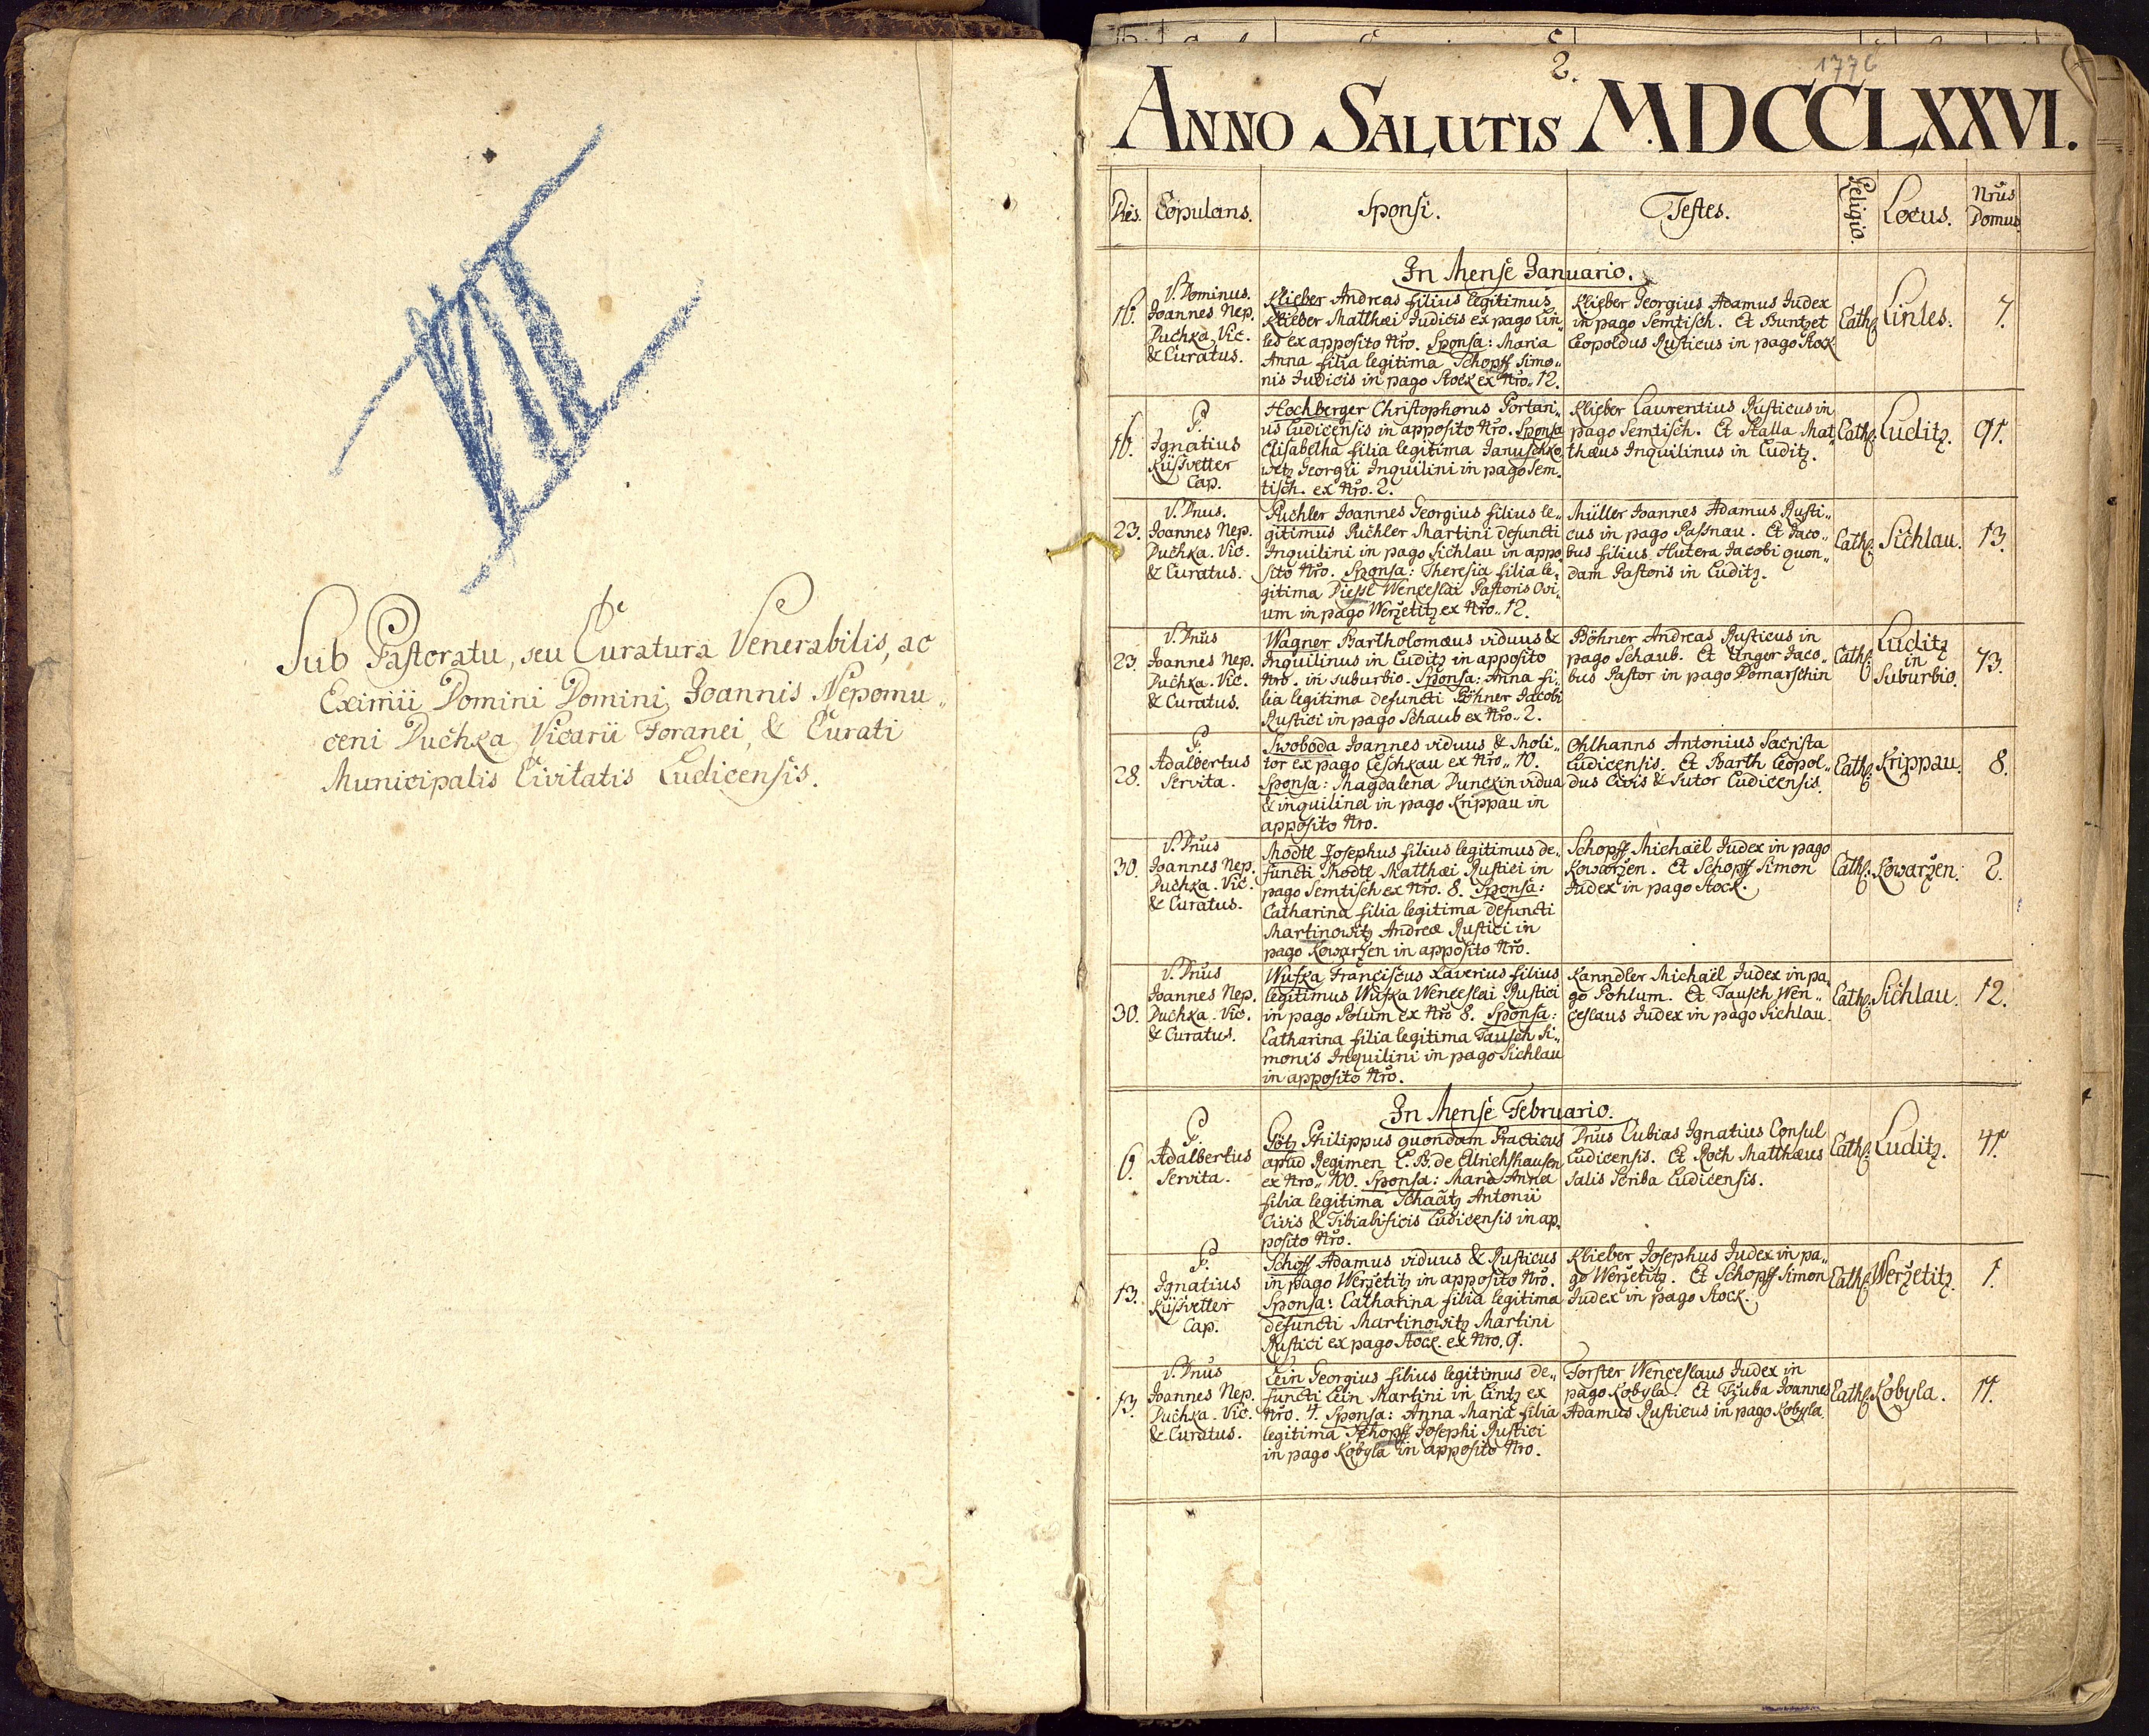 VII
Sub Pastoratu, seu Curatura Venerabilis, ac
Eximii Domini Domini Joannis Nepomu„
ceni Puchka Vicarii Foranei, & Curati
Municipalis Civitatis Ludicensis.
2.
1776
ANNO SALUTIS MDCCLXXVI.
Dies.
Copulans.
Sponsi.
Testes.
Religio.
Locus.
Nrus
Domus
In Mense Januario.
16.
V. Dominus.
Joannes Nep.
Puchka, Vic.
& Curatus.
Klieber Andreas filius legitimus
Klieber Matthæi Judicis ex pago Lin„
les ex apposito Nro. Sponsa: Maria
Anna filia legitima Schopff Simo„
nis Judicis in pago Stock ex Nro„ 12.
Klieber Georgius Adamus Judex
in pago Semtisch. Et Buntzet
Leopoldus Rusticus in pago Stock
Cath:
Linles.
7.
16.
P.
Ignatius
Küssvetter
Cap.
Hochberger Christophorus Portari„
us Ludicensis in apposito Nro. Sponsa
Elisabetha filia legitima Januschko
witz Georgii Inquilini in pago Sem„
tisch. ex Nro. 2.
Klieber Laurentius Rusticus in
pago Semtisch. Et Stalla Mat
thæus Inquilinus in Luditz.
Cath:
Luditz.
91.
23.
V. Dnus.
Joannes Nep.
Puchka. Vic.
& Curatus.
Puchler Joannes Georgius filius le„
gitimus Puchler Martini defuncti
Inquilini in pago Sichlau in appo
sito Nro. Sponsa: Theresia filia le„
gitima Diessl Wenceslai Pastoris Ovi„
um in pago Werzetitz ex Nro„ 12.
Müller Joannes Adamus Rusti„
cus in pago Passnau. Et Jaco„
bus filius Hutera Jacobi quon„
dam Pastoris in Luditz.
Cath:
Sichlau.
13.
23.
V. Dnus
Joannes Nep.
Puchka. Vic.
& Curatus.
Wagner Bartholomæus viduus &
Inquilinus in Luditz in apposito
Nro. in suburbio. Sponsa: Anna fi„
lia legitima defuncti Böhner Jacobi
Rustici in pago Schaub ex Nro„ 2.
Böhner Andreas Rusticus in
pago Schaub. Et Unger Jaco„
bus Pastor in pago Domaschin
Cath:
Luditz
in
Suburbio.
73.
28.
P.
Adalbertus
Servita.
Swoboda Joannes viduus & Moli„
tor ex pago Leschkau ex Nro„ 10.
Sponsa: Magdalena Dunckin vidua
& inquilina in pago Krippau in
apposito Nro.
Ohlhanns Antonius Sacrista
Ludicensis. Et Barth Leopol„
dus Civis & Sutor Ludicensis.
Cath:
Krippau.
8.
30.
V. Dnus
Joannes Nep.
Puchka. Vic.
& Curatus.
Modtl Josephus filius legitimus de„
functi Modtl Matthæi Rustici in
pago Semtisch ex Nro. 8. Sponsa:
Catharina filia legitima defuncti
Martinowitz Andreæ Rustici in
pago Kowarzen in apposito Nro.
Schopff Michaël Judex in pago
Kowarzen. Et Schopff Simon
Judex in pago Stock.
Cath:
Kowarzen.
2.
30.
V. Dnus
Joannes Nep.
Puchka. Vic.
& Curatus.
Wufka Franciscus Xaverius filius
legitimus Wufka Wenceslai Rustici
in pago Polum ex Nro 8. Sponsa:
Catharina filia legitima Tausch Si„
monis Inquilini in pago Sichlau
in apposito Nro.
Kanndler Michaël Judex in pa„
go Pohlum. Et Tausch Wen„
ceslaus Judex in pago Sichlau.
Cath:
Sichlau.
12.
In Mense Februario.
6.
P.
Adalbertus
Servita.
Götz Philippus quondam Practicus
apud Regimen L. B. de Ellrichshausen
ex Nro„ 100. Sponsa: Maria Anna
filia legitima Schaatz Antonii
Civis & Tibialificis Ludicensis in ap„
posito Nro.
Dnus Lubias Ignatius Consul
Ludicensis. Et Roch Matthæus
Salis Scriba Ludicensis.
Cath:
Luditz.
41.
13.
P.
Ignatius
Küssvetter
Cap.
Schoff Adamus viduus & Rusticus
in pago Werzetitz in apposito Nro.
Sponsa: Catharina filia legitima
defuncti Martinowitz Martini
Rustici ex pago Stock. ex Nro. 9.
Klieber Josephus Judex in pa„
go Werzetitz. Et Schopff Simon
Judex in pago Stock.
Cath:
Werzetitz.
1.
13.
V. Dnus
Joannes Nep.
Puchka. Vic.
& Curatus.
Lein Georgius filius legitimus de„
functi Lein Martini in Lintz ex
Nro. 4. Sponsa: Anna Maria filia
legitima Schopff Josephi Rustici
in pago Kobyla in apposito Nro.
Forster Wenceslaus Judex in
pago Kobyla. Et Tzuba Joannes
Adamus Rusticus in pago Kobyla.
Cath:
Kobyla.
14.